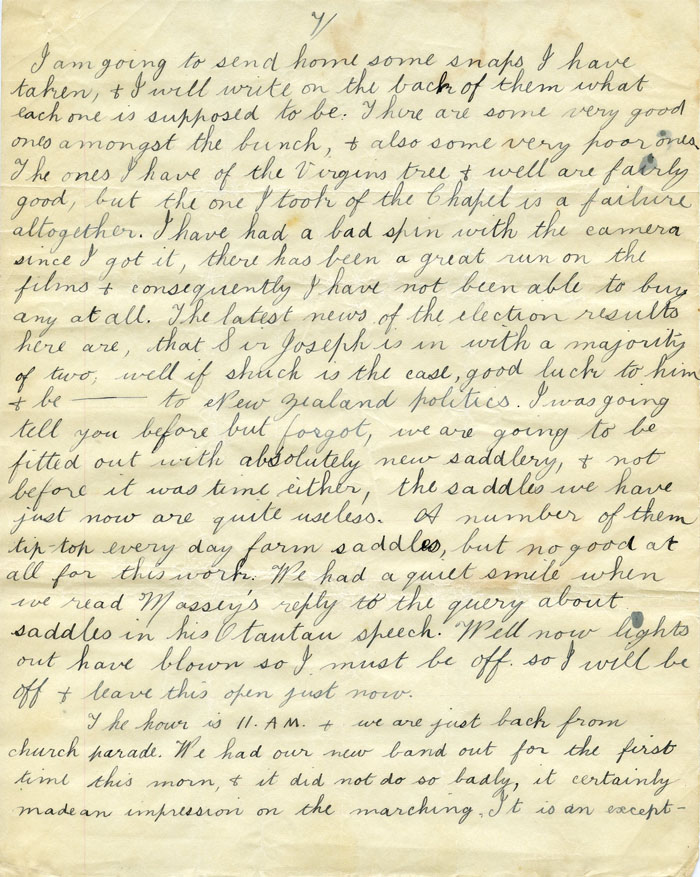 7/
I am going to send home some snaps I have
taken, & I will write on the back of them what
each one is supposed to be. There are some very good
ones amongst the bunch, & also some very poor ones.
The ones I have of the Virgins tree & well are fairly
good, but the one I took of the Chapel is a failure
altogether. I have had a bad spin with the camera
since I got it, there has been a great run on the
films & consequently I have not been able to buy
any at all. The latest news of the election results
here are, that Sir Joseph is in with a majority
of two, well if shuch is the case, good luck to him
& be —— to New Zealand politics. I was going
tell you before but forgot, we are going to be
fitted out with absolutely new saddlery, & not
before it was time either, the saddles we have
just now are quite useless. A number of them
tip-top every day farm saddles, but no good at
all for this work. We had a quiet smile when
we read Massey's reply to the query about
saddles in his Otautau speech. Well now lights
out have blown so I must be off. so I will be
off & leave this open just now.
The hour is 11. A.M. & we are just back from
church parade. We had our new band out for the first
time this morn, & it did not do so badly, it certainly
made an impression on the marching. It is an except-